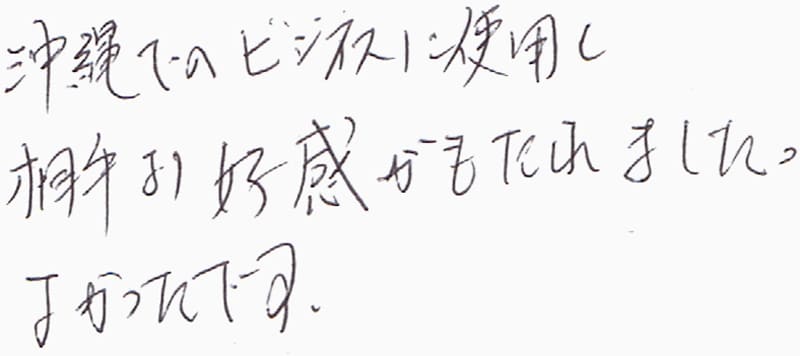 沖縄でのビジネスに使用し
相手より好感がもたれました。
よかったです.